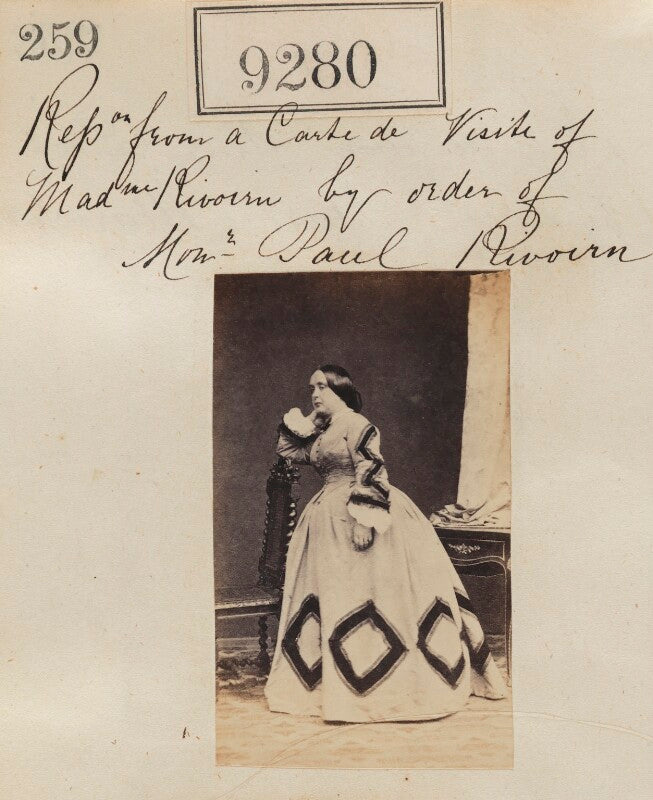 259
9280
Repson from a Carte de Visite of
Madme Rivoirn by order of
Monr Paul Rivoirn